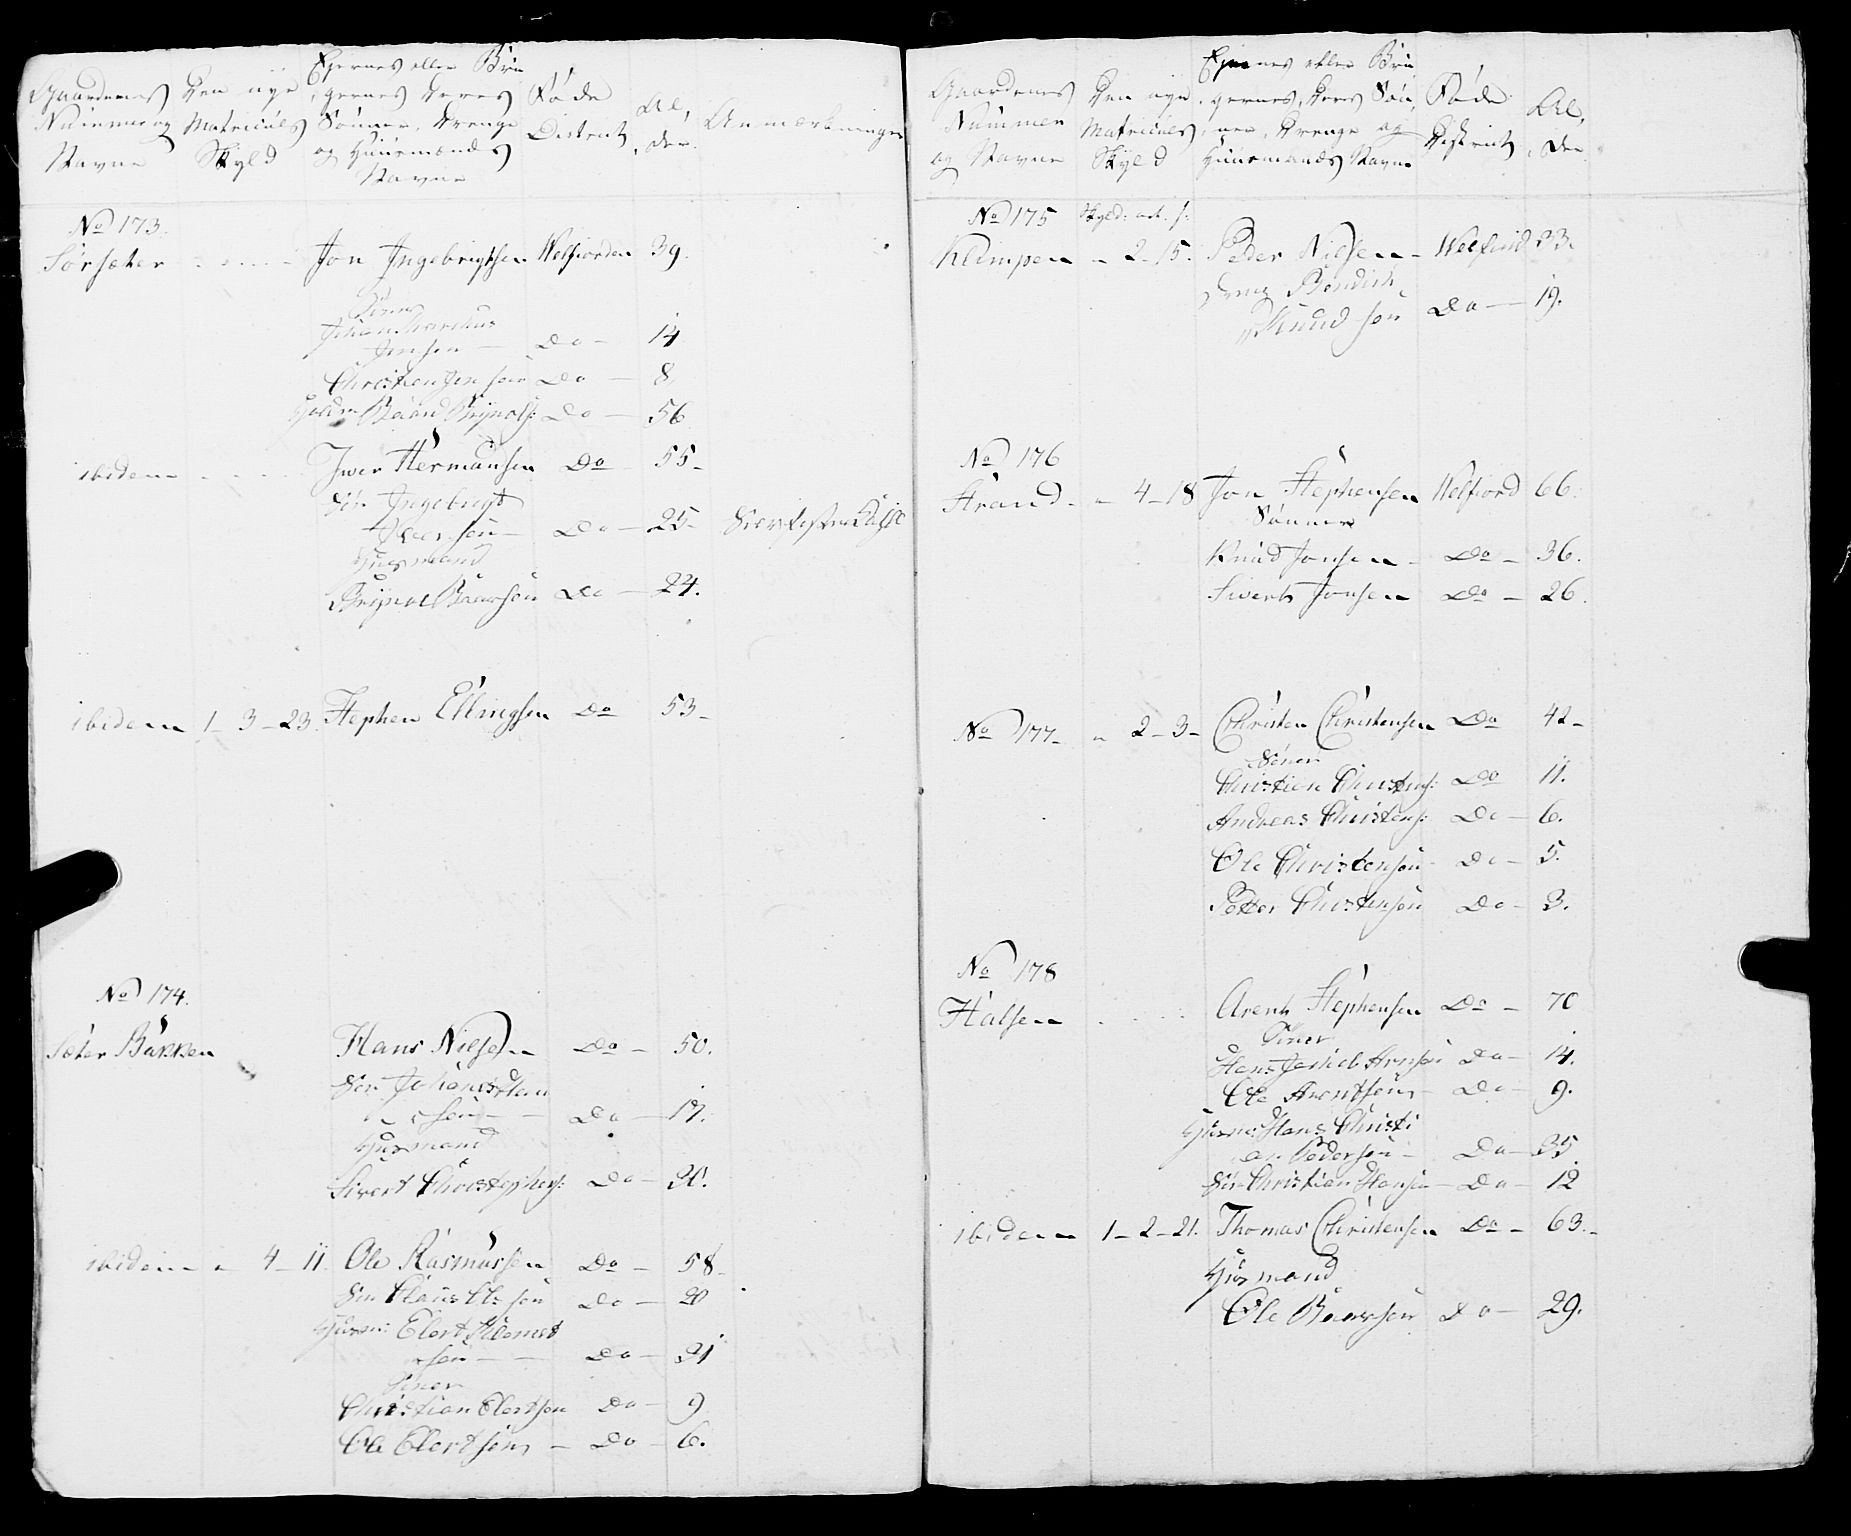 Gaardenes
Nummer og
Navne
Den nye
Matriculs
Skyld
Ejernes eller Bru
gernes Deres
Sønner, Drenge
og Huusmænds
Navne
Føde
District
Al,
der
Anmærkninger
No 173.
Sørsæter Jon Ingebrigtsen Welfiorden 39.
Søner
Johan Marchus
Jonsen — Do — 14
Christen Jonsen Do — 8.
Baard Brynols: Do — 56
ibidem Iwer Hermansen Do 55-
Søn Ingebrigt
Iversen — Do — 25-
Husmand
Brynol Baarsen Do — 24.
ibidem 1-3-23. Stephen Ellingsen Do 53-
No 174.
Sæter Bakken Hans Nielsen Do — 50.
Søn Johanes Han
sen — Do — 17.
Husmand
Sivert Christophers: Do — 30.
ibidem " 4-11. Ole Rasmussen Do — 58-
Søn Claus Olsen Do — 20
Husm: Elert Klemet
sen — Do — 31
Søner
Christian Elertsen Do — 9
Ole Elertsen — Do — 6.
Gaardenes
Nummer
og Navne
Den nye
Matriculs
Skyld
Ejernes eller Bru
gernes, Deres Søn,
ner, Drenge og
Huusmænds Navne
Føde
District
Al,
der
No 175
Klimpen " 2-15. Peder Nielsen — Welfiord 33.
Dreng Bendich
Knudsen Do — 19.
No 176
Strand - " 4-18 Jon Stephensen Welfiord 66.
Sønner
Knud Jonsen - Do — 36.
Siverts Jonsen Do — 26.
No 177- " 2-3- Christen Christensen Do 42-
Søner
Christien Christens: Do 11.
Andreas Christens: Do — 6.
Ole Christensen Do — 5.
Petter Christensen Do — 3.
No 178
Halsen Arent Stephensen Do — 70
Søner
Hans Jachob Arnsen Do — 14.
Ole Arentsen — Do — 9.
Husm: Hans Christi
an Pedersen — Do — 35
Søn Christian Hansen — Do — 12
ibidem 1-2-21. Thomas Christensen Do — 63.-
Husmand
Ole Baarsen Do — 29.